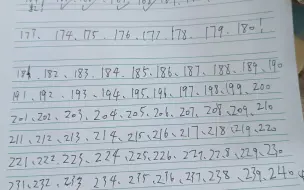 173. 174. 175. 176. 177. 178. 179. 180!
181. 182. 183. 184. 185. 186. 187. 188. 189. 190
191. 192. 193. 194. 195. 196. 197. 198. 199. 200
201. 202. 203. 204. 205. 206. 207. 208. 209. 210
211. 212. 213. 214. 215. 216. 217. 218. 219. 220
221. 222. 223. 224. 225. 226. 227. 228. 229. 230
231. 232. 233. 234. 235. 236. 237. 238. 239. 240